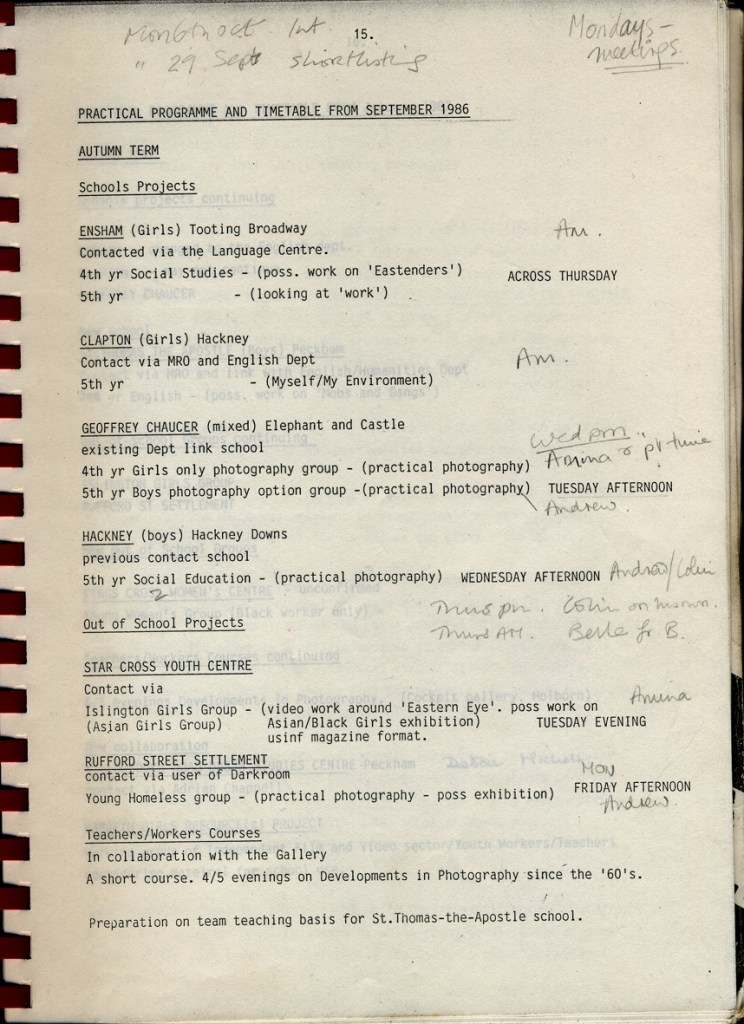 Mon 6th Oct Int
" 29 Sept shortlisting
15.
Mondays -
meetings.
PRACTICAL PROGRAMME AND TIMETABLE FROM SEPTEMBER 1986
AUTUMN TERM
Schools Projects
ENSHAM (Girls) Tooting Broadway
Am.
Contacted via the Language Centre.
4th yr Social Studies - (poss. work on 'Eastenders')
ACROSS THURSDAY
5th yr - (looking at 'work')
CLAPTON (Girls) Hackney
Contact via MRO and English Dept
Am.
5th yr - (Myself/My Environment)
GEOFFREY CHAUCER (mixed) Elephant and Castle
existing Dept link school
Wed pm
4th yr Girls only photography group - (practical photography)
Amina
5th yr Boys photography option group -(practical photography) TUESDAY AFTERNOON
Andrew.
HACKNEY (boys) Hackney Downs
previous contact school
5th yr Social Education - (practical photography) WEDNESDAY AFTERNOON Andrew/Colin
2
Thurs pm. Colin on
Out of School Projects
Thurs AM. Belle for B.
STAR CROSS YOUTH CENTRE
Contact via
Islington Girls Group - (video work around 'Eastern Eye'. poss work on
Amina
(Asian Girls Group) Asian/Black Girls exhibition) TUESDAY EVENING
usinf magazine format.
RUFFORD STREET SETTLEMENT
contact via user of Darkroom
MON
Young Homeless group - (practical photography - poss exhibition) FRIDAY AFTERNOON
Andrew
Teachers/Workers Courses
In collaboration with the Gallery
A short course. 4/5 evenings on Developments in Photography since the '60's.
Preparation on team teaching basis for St.Thomas-the-Apostle school.